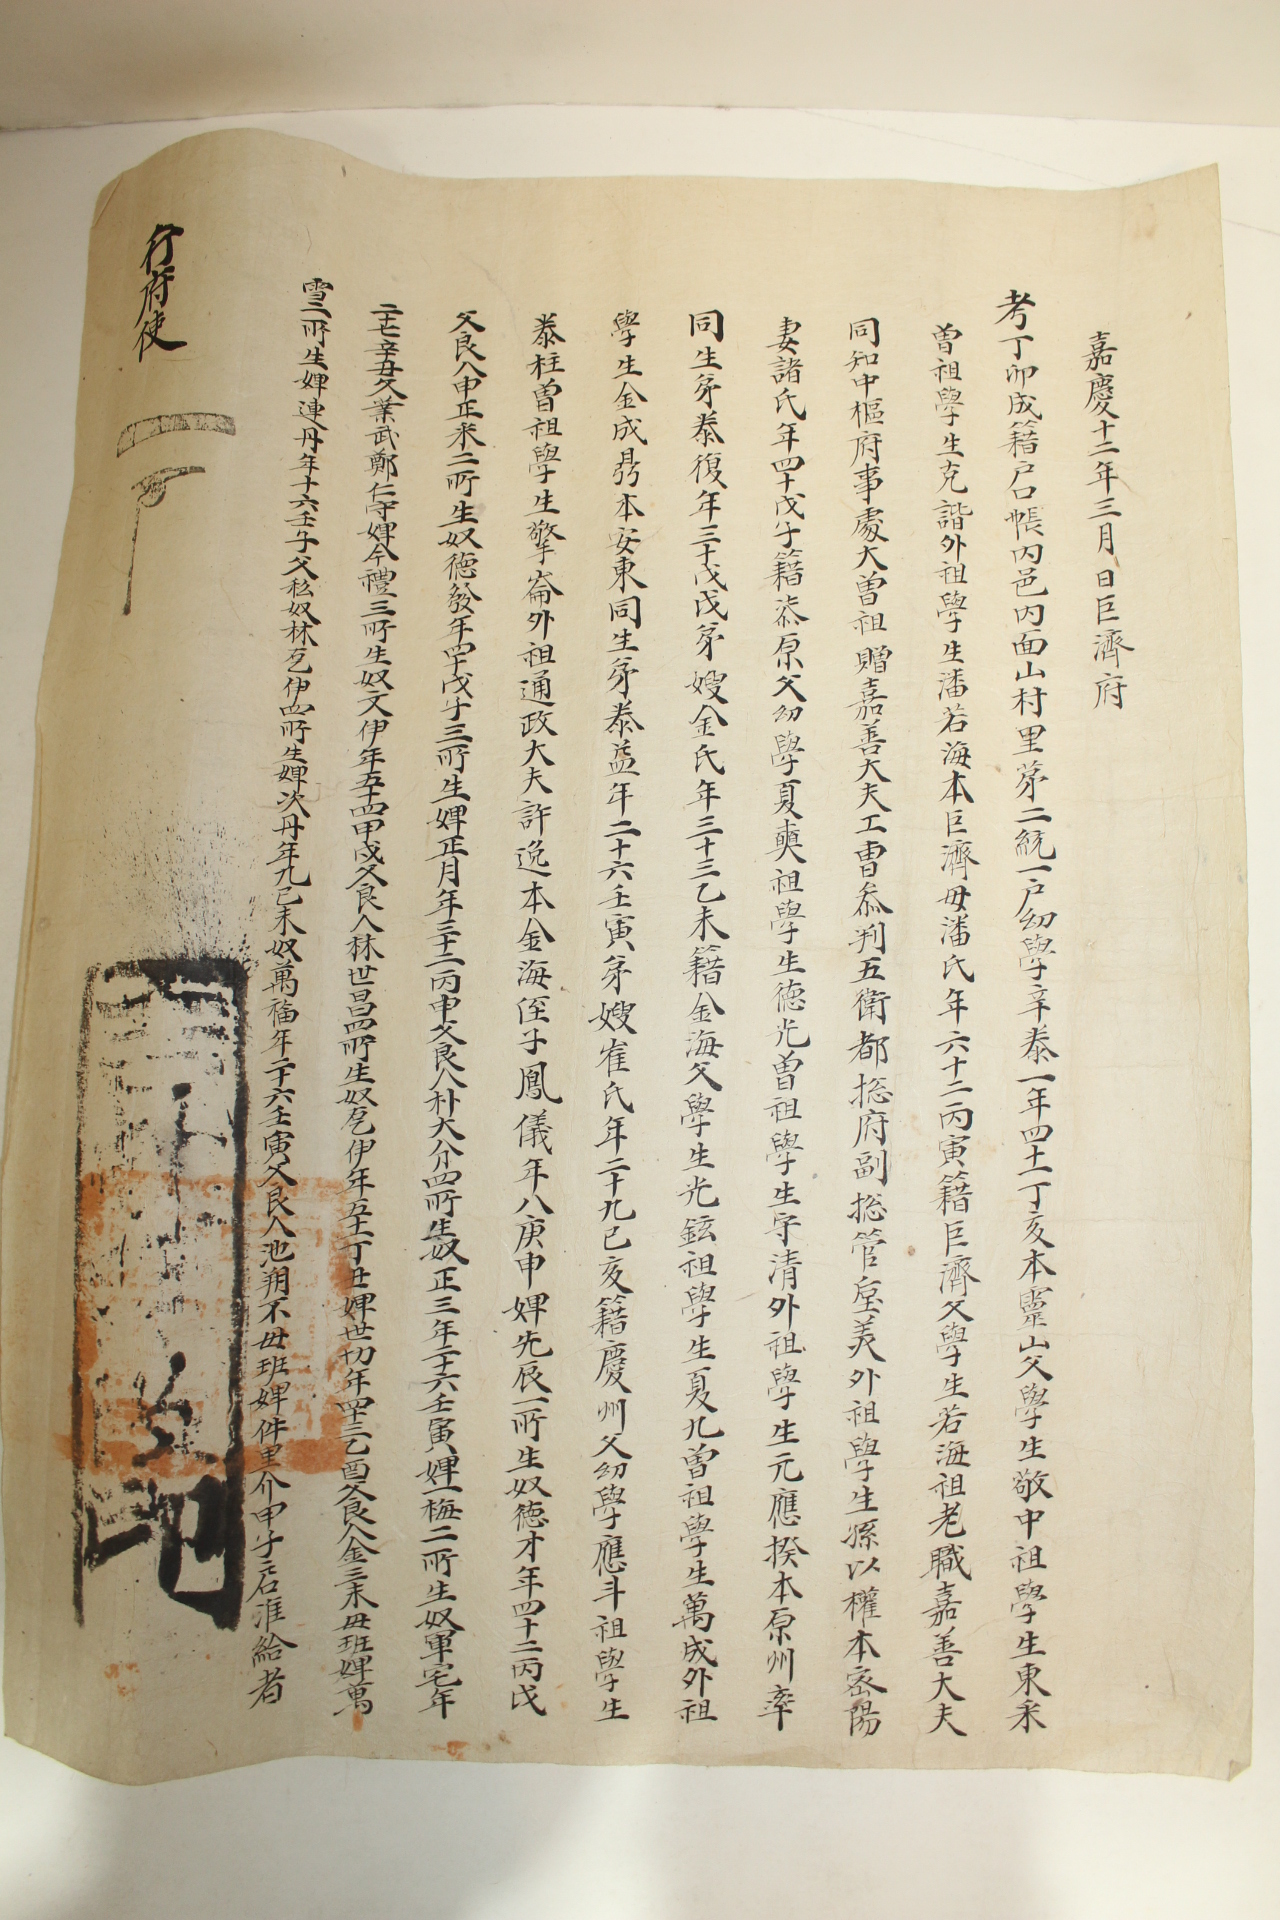 嘉慶十二年三月 日巨濟府
考丁卯成籍戶口帳內邑內面山村里苐二統一戶幼學辛泰一年四十一丁亥本靈山父學生敬中祖學生東釆
曾祖學生克諧外祖學生潘若海本巨濟母潘氏年六十二丙寅籍巨濟父學生若海祖老職嘉善大夫
同知中樞府事處大曾祖贈嘉善大夫工曹叅判五衛都摠府副摠管屋美外祖學生孫以權本密陽
妻諸氏年四十戊子籍柒原父幼學夏奭祖學生德光曾祖學生字清外祖學生元應揆本原州率
同生弟泰復年三十戊戌弟嫂金氏年三十三乙未籍金海父學生光鉉祖學生夏九曾祖學生萬成外祖
學生金成鼎本安東同生弟泰益年二十六壬寅弟嫂崔氏年二十九己亥籍慶州父幼學應斗祖學生
泰柱曾祖學生擎崙外祖通政大夫許逸本金海侄子鳳儀年八庚申婢先辰一所生奴德才年四十二丙戌
父良人申正釆二所生奴德發年四十戊子三所生婢正月年三十二丙申父良人朴大分四所生奴正三年二十六壬寅婢一梅二所生奴軍宅年
二十七辛丑父業武鄭仁守婢今禮三所生奴文伊年五十四甲戌父良人林世昌四所生奴乭伊年五十一丁丑婢世切年四十三乙酉父良人金三末母班婢萬
雪二所生婢連丹年十六壬子父私奴林乭伊四所生婢次丹年九己未奴萬福年二十六壬寅父良人池朔不母班婢件里介甲子君准給者
行府使